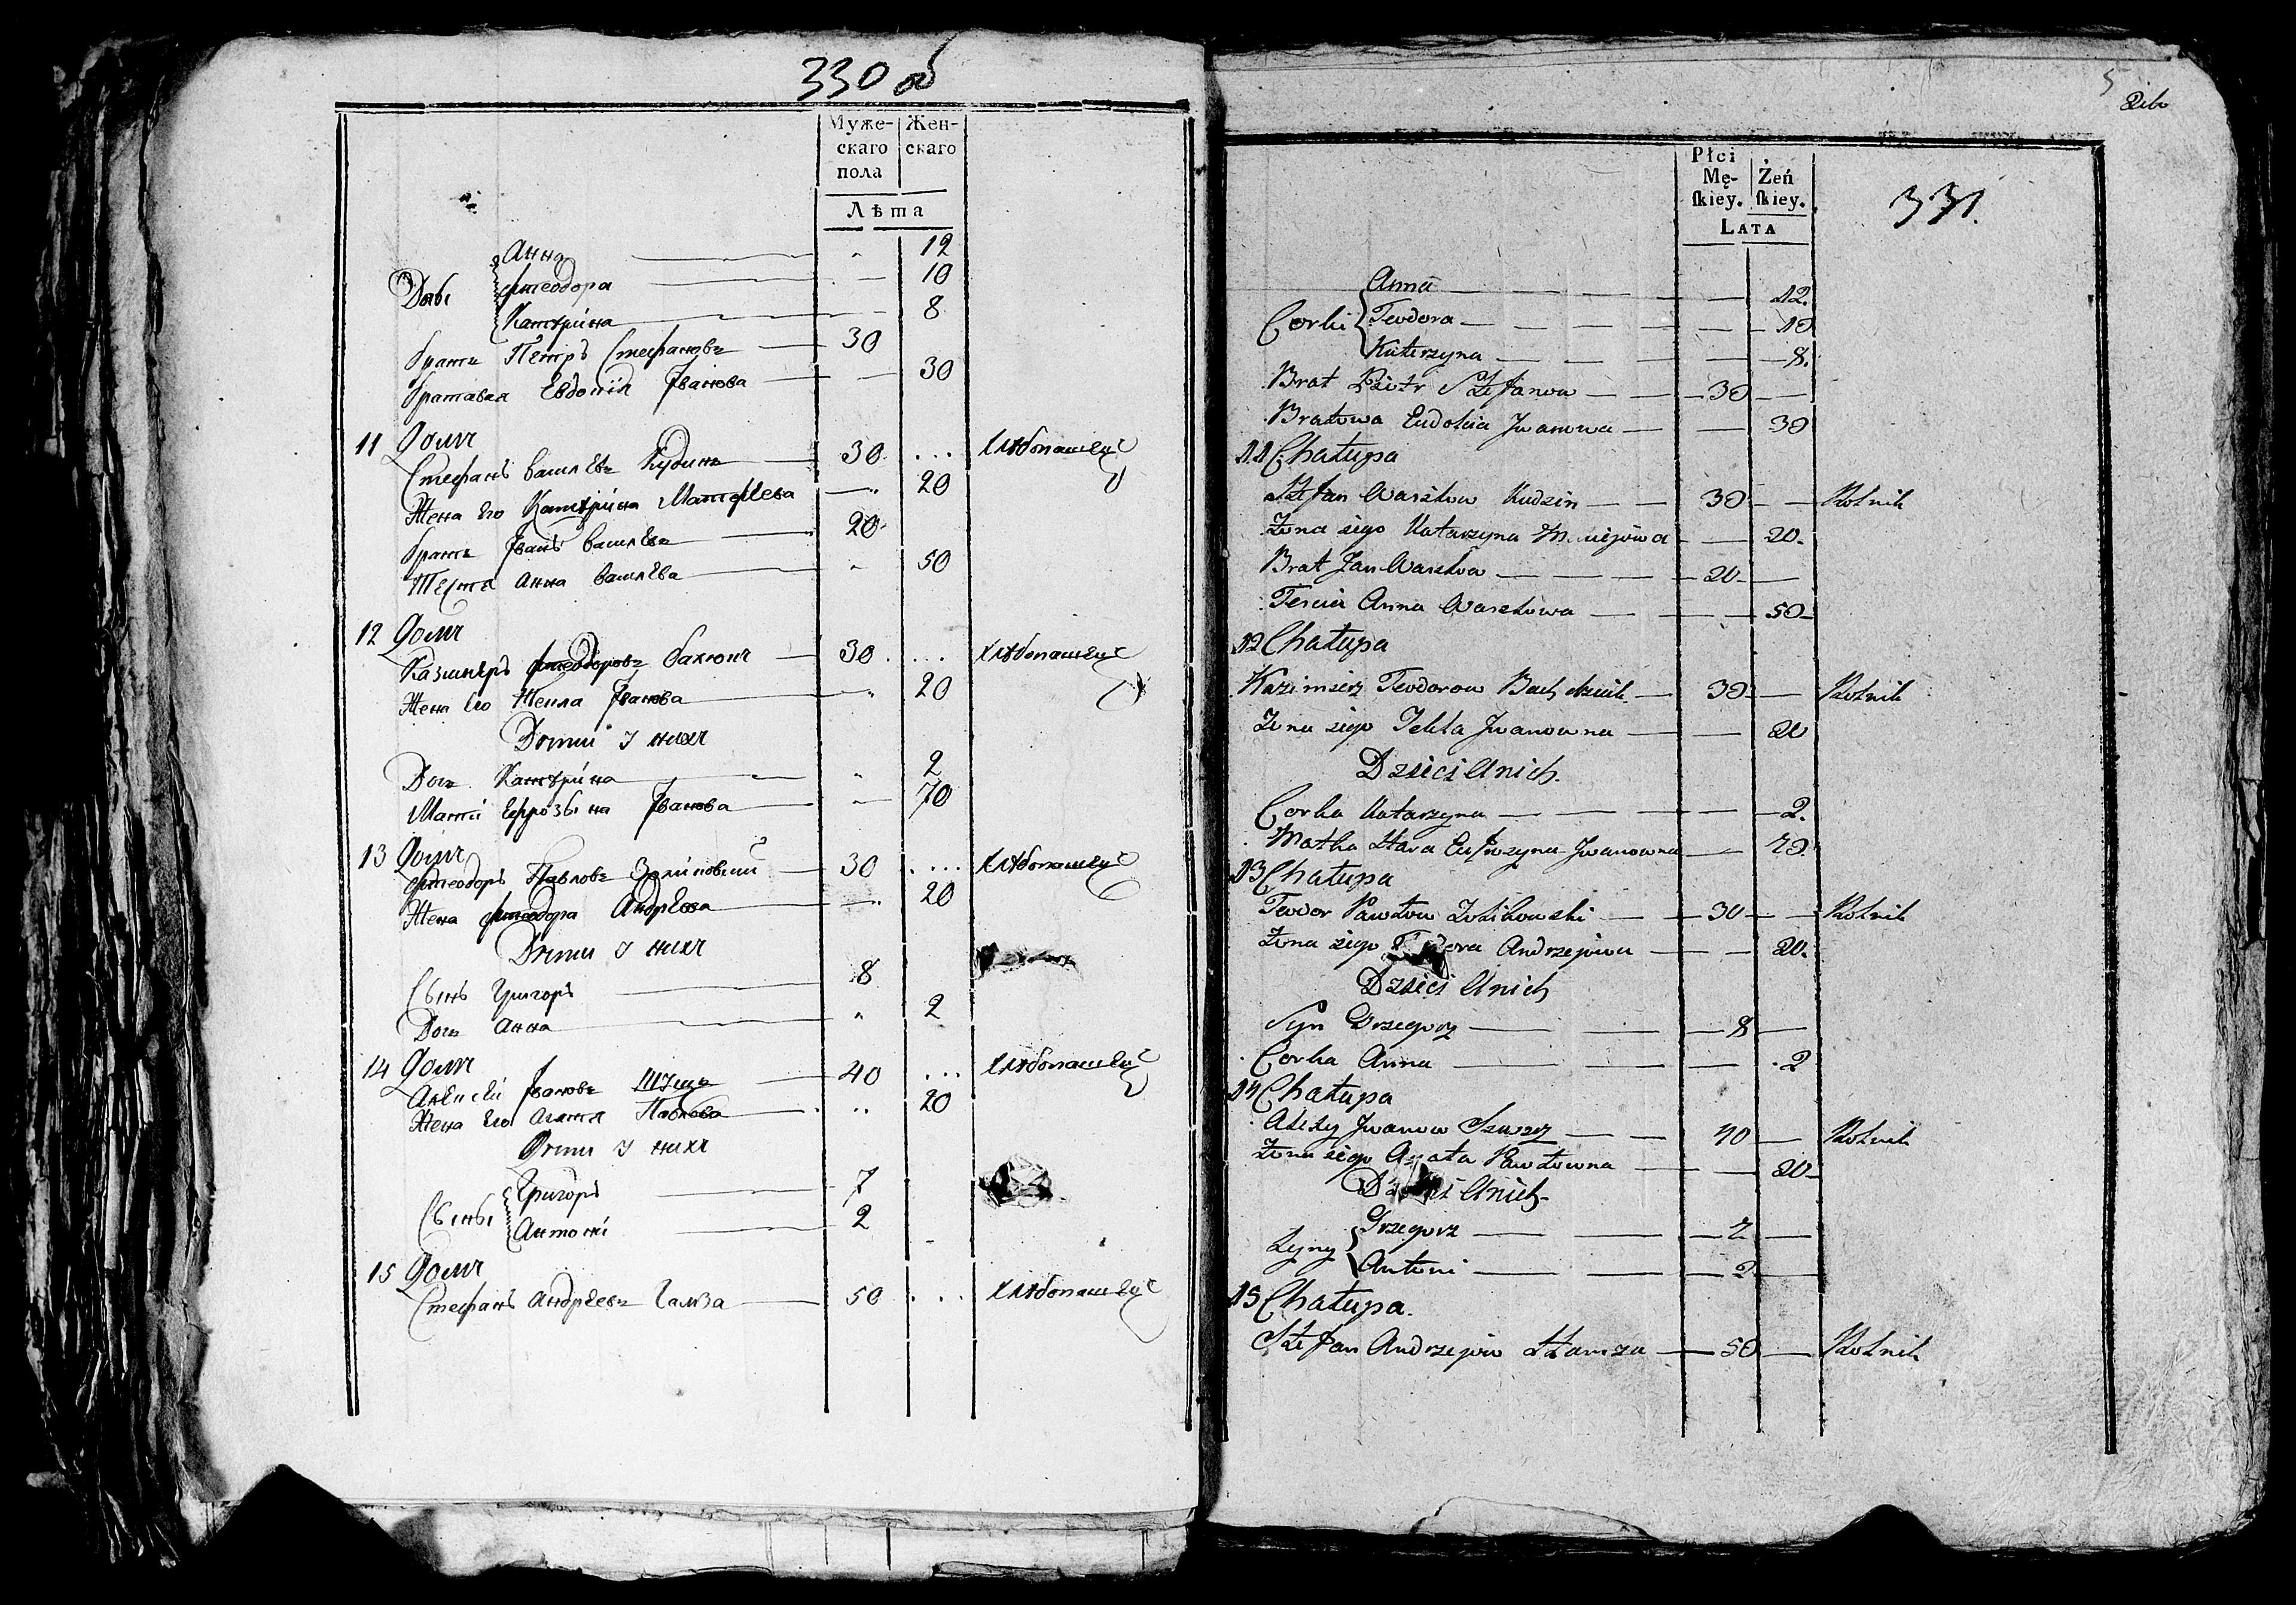 330 об
Муже-
скаго
пола
Жен-
скаго
Лѣта
Анна 12
Дочь Ѳтеодора 10
Катерина 8
братъ Петръ Стефановъ 30
братавая Евдокія Іванова 30
11 Домъ
Стефанъ василевъ Кудинъ 30 ... хлѣбопашецъ
Жена его Катерина Матфеева 20
братъ Іванъ василевъ 20
Теста Анна василева 50
12 Домъ
Казимиръ Ѳтеодоровъ 30 ... хлѣбопашецъ
Жена его Текла Іванова 20
Дети У нихъ
Доч Катерина 2
Мати Ефрозына Іванова 70
13 Домъ
Ѳтеодоръ Павловъ 30 .... хлѣбопашецъ
Жена Ѳтеодора Андреева 20
Дети У нихъ
Сынъ Григоръ 8
Доч Анна 2
14 Домъ
Алексей Івановъ 40 ... хлѣбопашецъ
Жена его Агата Павлова 20
Дети У нихъ
Сыны Григоръ 7
Антоні 2
15 Домъ
Стефанъ Андреевъ Гамза 50 ... хлѣбопашецъ
5
331.
Płci
Mę-
skiey.
Żeń
skiey.
LATA
Anna 12.
Corki Teodora 10
Katerzyna 8.
Brat Piotr Stefanow 30
Bratowa Eudokia Jwanowa 30
11 Chałupa
Stefan Wasilow Kudzin 30 Rolnik
Zona iego Katarzyna 20.
Brat Jan Wasilow 20
Teścia Anna Wasilowa 50
12 Chałupa
Kazimierz Teodorow 30 Rolnik
Zona iego Tekla Jwanowna 20
Dzieci Unich.
Corka Katarzyna 2.
Matka Stara Eufrozyna Jwanowna 70.
13 Chałupa
Teodor Pawłow Zolikowski 30 Rolnik
Zona iego Andrzejowa 20.
Dzieci Unich
Syn Grzegorz 8
Corka Anna 2
14 Chałupa
Alexy Jwanow 40 Rolnik
Zona iego Agata Pawłowna 20
Dzieci Unich.
Syny Grzegorz 7
Antoni 2
15 Chałupa.
Stefan Andrzejow Hamza 50 Rolnik